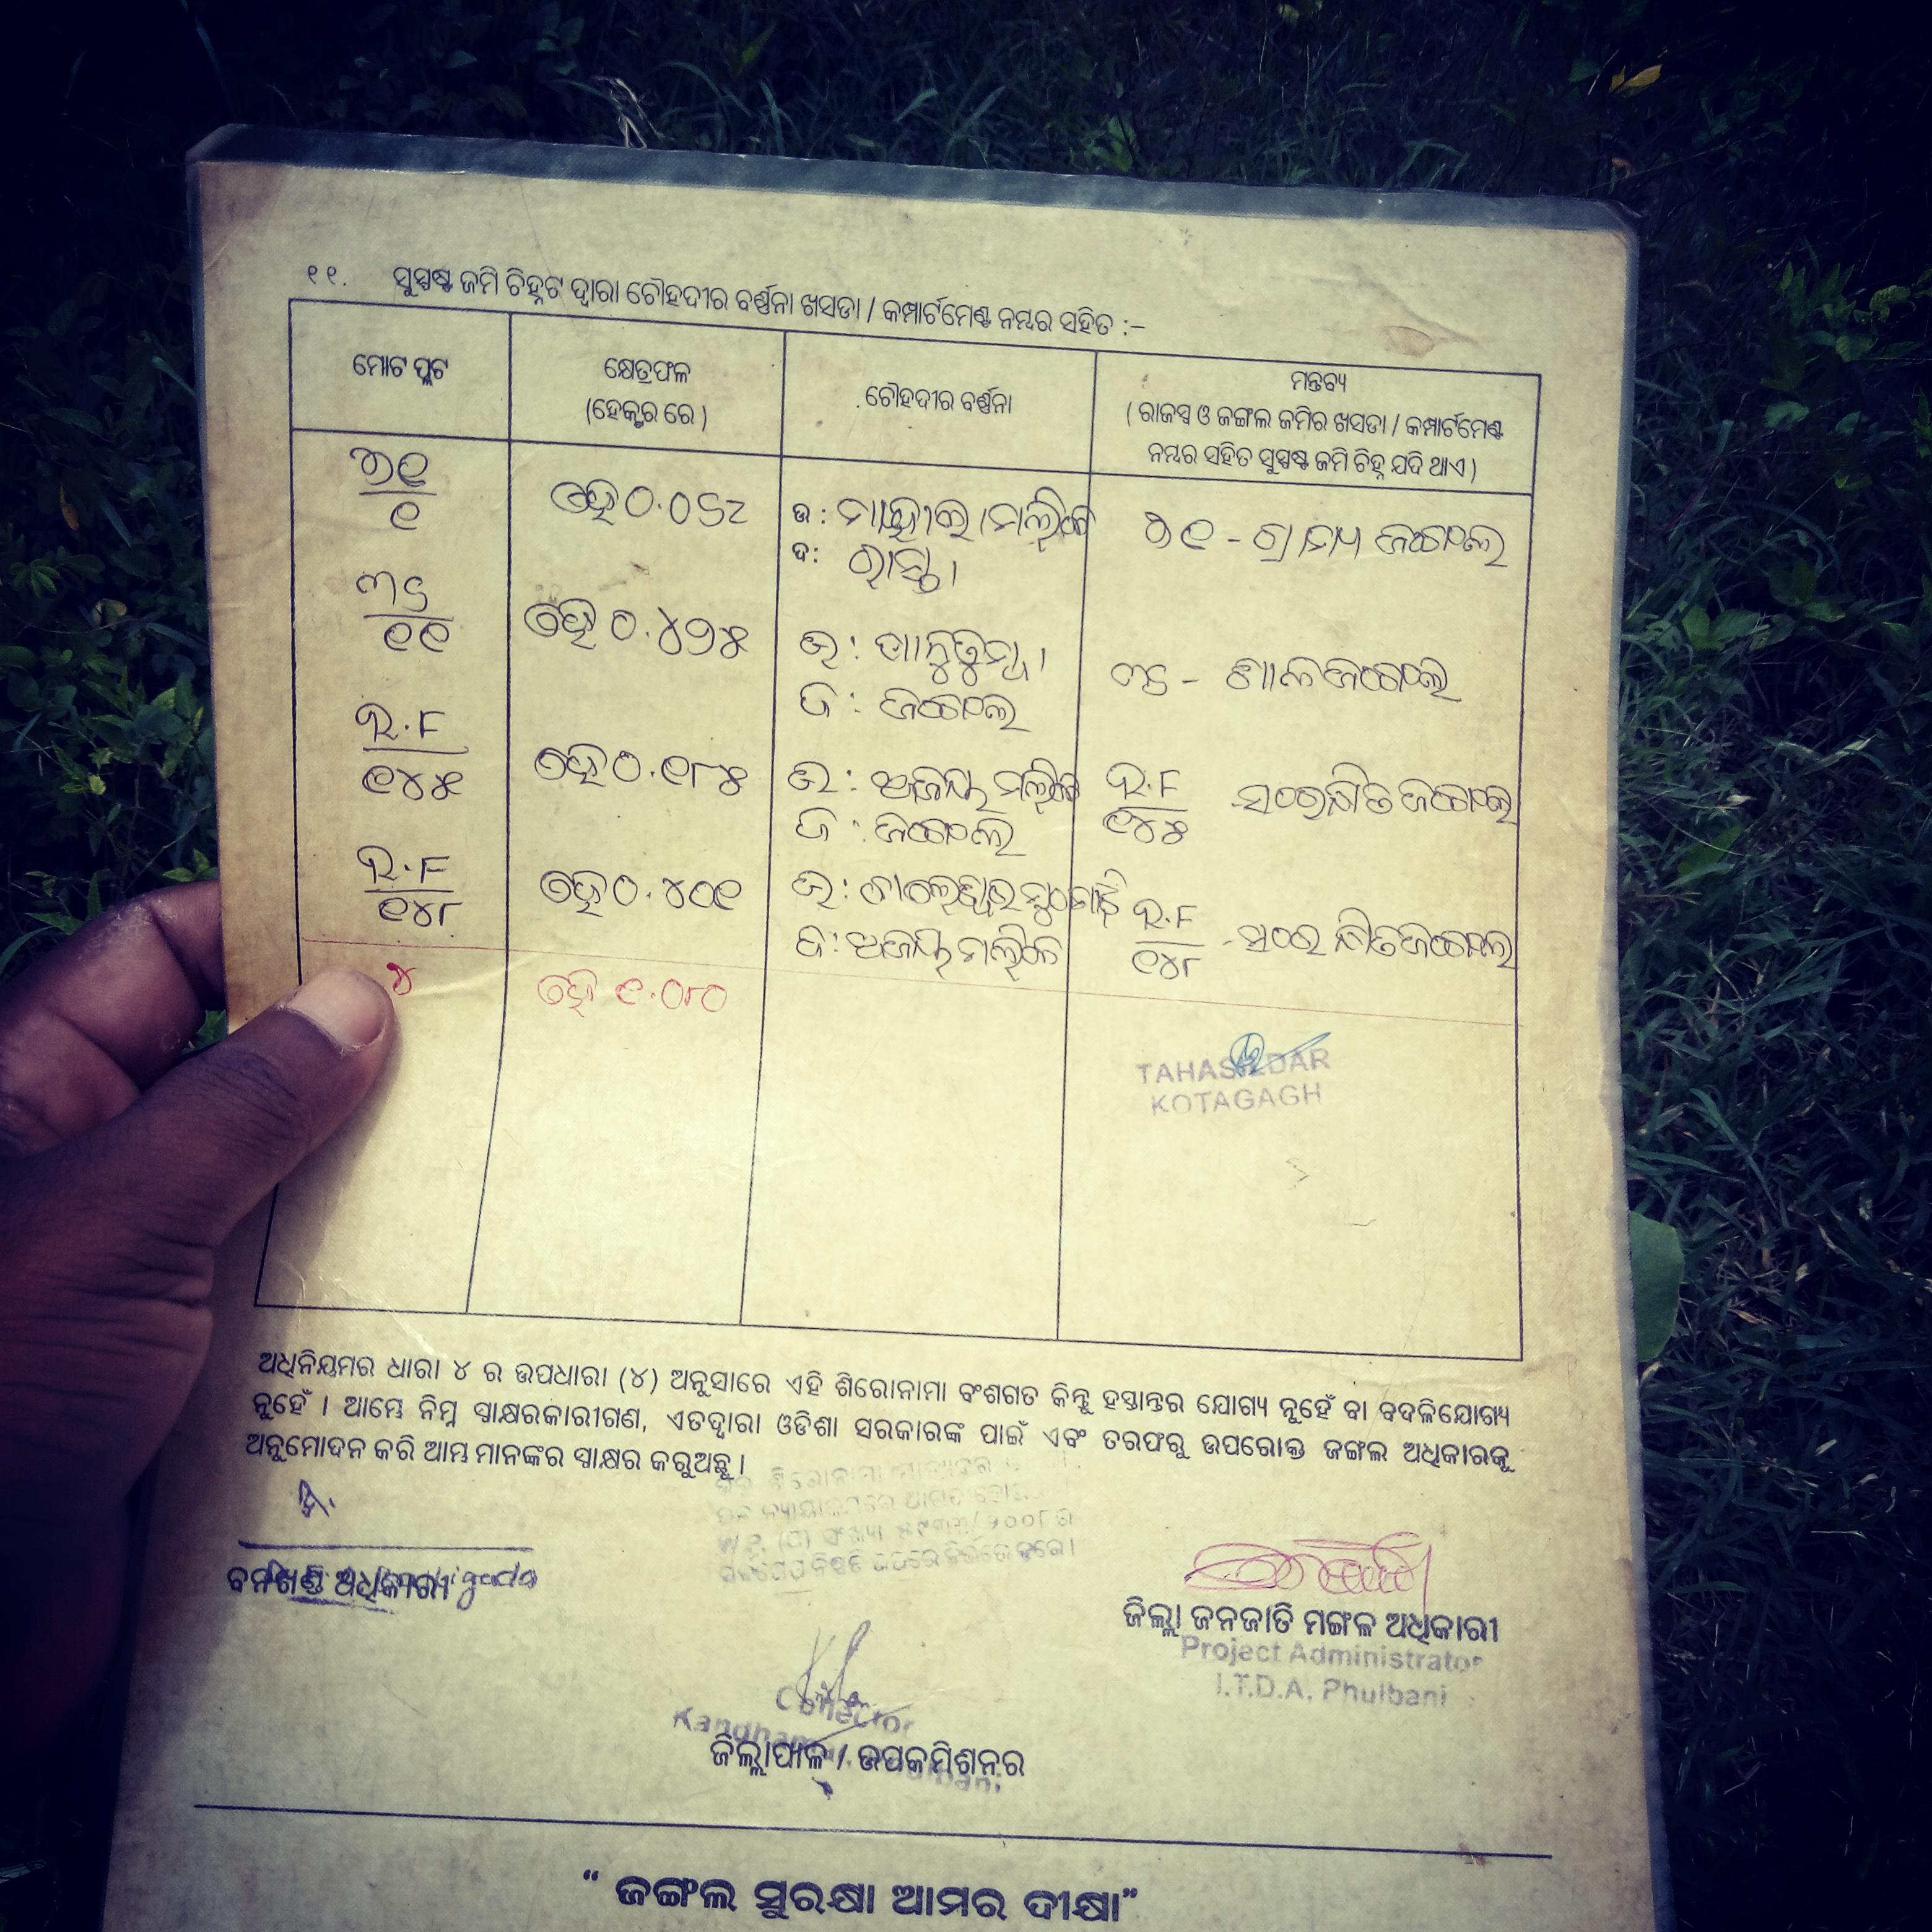 ୧୧. ସୁସ୍ପଷ୍ଟ ଜମି ଚିହ୍ନଟ ଦ୍ୱାରା ଚୌହଦୀର ବର୍ଣ୍ଣନା ଖସଡା / କମ୍ପାର୍ଟମେଣ୍ଟ ନମ୍ବର ସହିତ :–
ମୋଟ ପ୍ଲଟ
କ୍ଷେତ୍ରଫଳ
(ହେକ୍ଟର ରେ)
ଚୌହଦୀର ବର୍ଣ୍ଣନା
ମନ୍ତବ୍ୟ
(ରାଜସ୍ୱ ଓ ଜଙ୍ଗଲ ଜମିର ଖସଡା / କମ୍ପାର୍ଟମେଣ୍ଟ
ନମ୍ବର ସହିତ ସୁସ୍ପଷ୍ଟ ଜମି ଚିହ୍ନ ଯଦି ଥାଏ)
୭୧/୧ ହେ ୦.୦୬୯
ଉ : ମଲ୍ଲିକ
ଦ: ରାସ୍ତା
୭୧ - ଗ୍ରାମ୍ୟ ଜଙ୍ଗଲ
୩୬/୧୧ ହେ ୦.୪୨୫
ଉ :
ଦ : ଜଙ୍ଗଲ
୩୬ - ଶାଳ ଜଙ୍ଗଲ
R.F/୧୪୫ ହେ ୦.୧୮୫
ଉ : ଅଜୟ ମଲ୍ଲିକ
ଦ : ଜଙ୍ଗଲ
R.F/୧୪୫ - ସଂରକ୍ଷିତ ଜଙ୍ଗଲ
R.F/୧୪୮ ହେ ୦.୪୦୧
ଉ :
ଦ : ଅଜୟ ମଲ୍ଲିକ
R.F/୧୪୮ - ସଂରକ୍ଷିତ ଜଙ୍ଗଲ
୪ ହେ ୧.୦୮୦
TAHASILDAR
KOTAGAGH
ଅଧିନିୟମର ଧାରା ୪ ର ଉପଧାରା (୪) ଅନୁସାରେ ଏହି ଶିରୋନାମା ବଂଶଗତ କିନ୍ତୁ ହସ୍ତାନ୍ତର ଯୋଗ୍ୟ ନୁହେଁ ବା ବଦଳିଯୋଗ୍ୟ
ନୁହେଁ । ଆମ୍ଭେ ନିମ୍ନ ସ୍ୱାକ୍ଷରକାରୀଗଣ, ଏତଦ୍ୱାରା ଓଡିଶା ସରକାରଙ୍କ ପାଇଁ ଏବଂ ତରଫରୁ ଉପରୋକ୍ତ ଜଙ୍ଗଲ ଅଧିକାରକୁ
ଅନୁମୋଦନ କରି ଆମ୍ଭ ମାନଙ୍କର ସ୍ୱାକ୍ଷର କରୁଅଛୁ ।
ବନଖଣ୍ଡ ଅଧିକାରୀ
ଜିଲ୍ଲା ଜନଜାତି ମଙ୍ଗଳ ଅଧିକାରୀ
Project Administrator
I.T.D.A. Phulbani
Collector
ଜିଲ୍ଲାପାଳ / ଉପକମିଶନର
“ ଜଙ୍ଗଲ ସୁରକ୍ଷା ଆମର ଦୀକ୍ଷା”